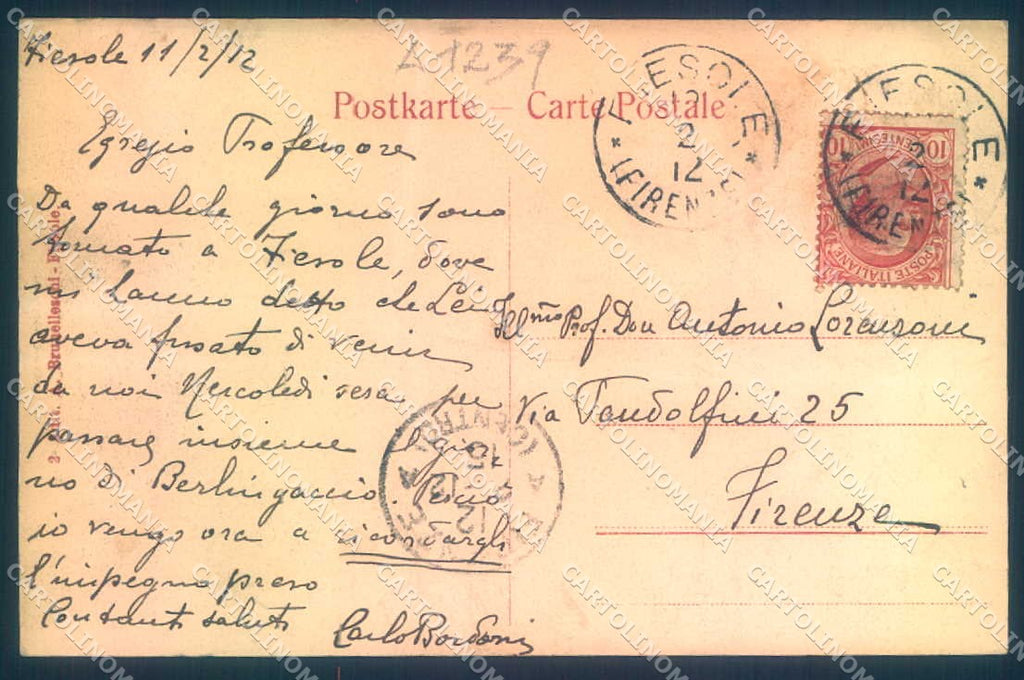 Fiesole 11/2/12
A1239
Postkarte — Carte Postale
Egregio Professore
Da qualche giorno sono
tornato a Fiesole, dove
mi hanno detto che Lei
aveva fissato di venir
da noi Mercoledì sera per
passare insieme il gior
no di Berlingaccio. Perciò
io vengo ora a ricordargli
l'impegno preso
Constanti saluti
Carlo Bordoni
Ill.mo Prof. Don Antonio Lorenzoni
Via Pandolfini 25
Firenze
FIESOLE
12 2 12
(FIRENZE)
FIESOLE
2 12
(FIREN
10 CENTESIMI 10
POSTE ITALIANE
(CENTRO)
12
Brunelleschi
CARTOLINOMANIA